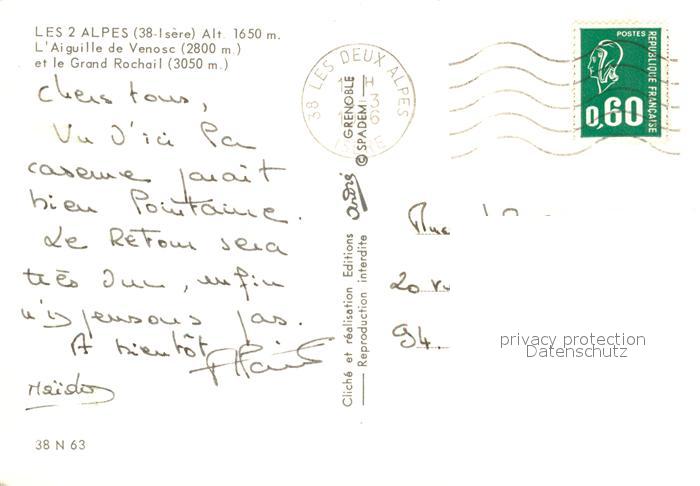 LES 2 ALPES (38-Isère) Alt. 1650 m.
L'Aiguille de Venosc (2800 m.)
et le Grand Rochail (3050 m.)
Chers tous,
Vu d'ici la
caserne paraît
bien lointaine.
Le Retour sera
très dur, enfin
n'y pensons pas.
A bientôt
38 N 63
Cliché et réalisation Editions André GRENOBLE
Reproduction interdite © SPADEM
38 LES DEUX ALPES
ISERE
POSTES
REPUBLIQUE FRANÇAISE
0,60
20
94
privacy protection
Datenschutz